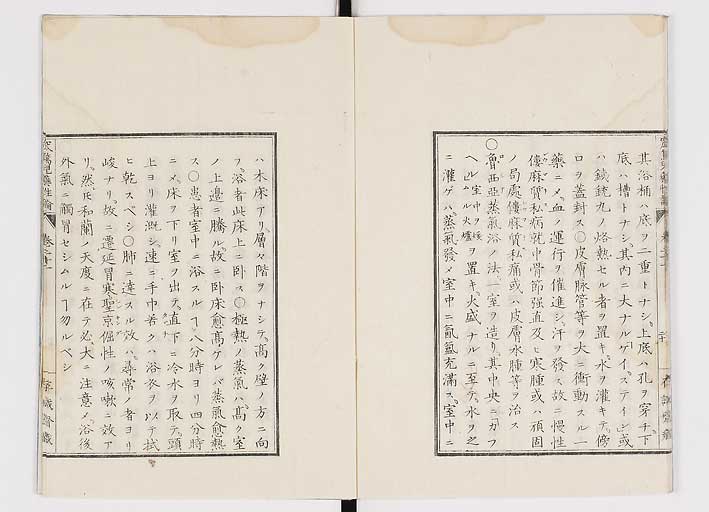 其浴桶ハ底ヲ二重トナシ上底ハ孔ヲ穿チ下
底ハ槽トナシ其內ニ大ナルゲイズテイン或
ハ鐵銃丸ノ烙熱セル者ヲ置キ水ヲ灌キテ傍
ロヲ蓋封ス〇皮膚脉管等ヲ大ニ衝動スル一
藥ニメ血ノ運行ヲ催進シ汗ヲ發ス故ニ慢性
僂麻質私病就中骨節强直及ヒ寒腫或ハ頑固
ノ局處僂麻質私痛或ハ皮膚水腫等ヲ治ス
〇魯西亞蒸氣浴ノ法一室ヲ造リ其中央ニカフ
ヘルヲ置キ火盛ナルニ至テ水ヲ之
ニ灌ゲハ蒸氣發メ室中ニ氤氳充滿ス室中ニ
ハ木床アリ層々階ヲナシテ高ク壁ノ方ニ向
フ浴者此床上ニ卧ス〇極熱ノ蒸氣ハ高ク室
ノ上邊ニ騰ル故ニ卧床愈高ゲレバ蒸氣愈熱
ス〇患者室中ニ浴スルヿ八分時ヨリ四分時
ニメ床ヲ下リ室ヲ出テ直下ニ冷水ヲ取テ頭
上ヨリ灌漑シ速ニ手巾若クハ浴衣ヲ以テ拭
ヒ乾スベシ〇肺ニ達スル效ハ尋常ノ者ヨリ
峻ナリ故ニ遷延冒寒聖京倔性ノ咳嗽ニ效ア
リ然𪜈和蘭ノ天度ニ在テ必大ニ注意メ浴後
外氣ニ觸冒セシムルヿ勿ルベシ